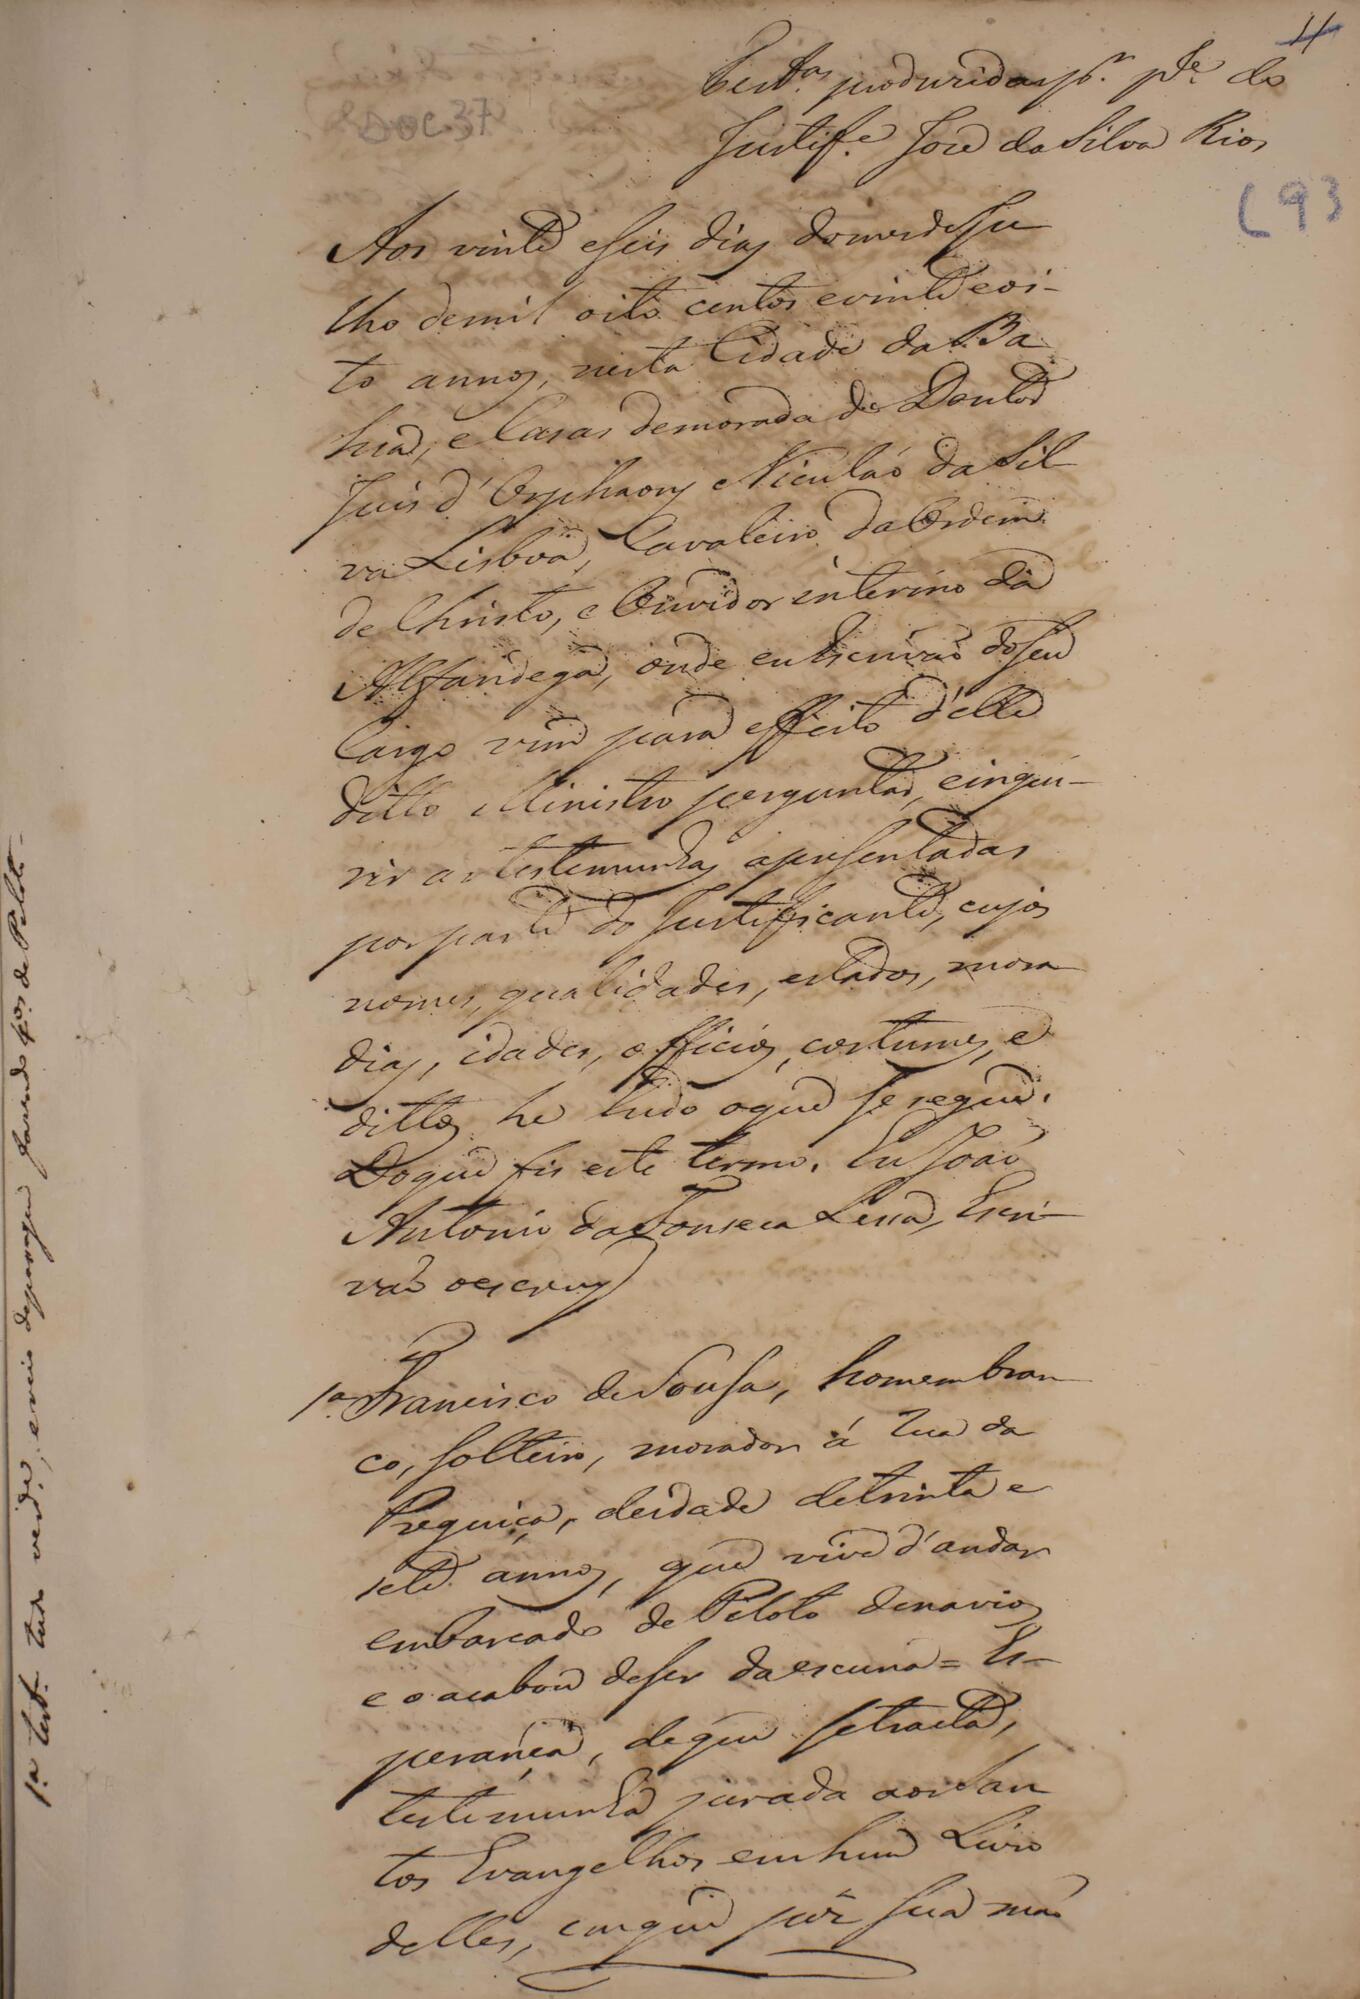 11
DOC. 37
Testas. produridas pr. pte. do
Justife. José da Silva Rios
(93
Aos vinte e seis dias do mes de Ju
lho de mil oito centos e vinte e oi-
to annos, nesta Cidade da Ba
hia, e Casas de morada do Doutor
Juis d'Orphaons Niculáo da Sil
va Lisboa, Cavaleiro da Ordem
de Christo, e Ouvidor interino da
Alfandega, onde eu Escrivaõ do seu
Cargo vim para effeito d'elle
ditto Ministro perguntar, e inqui-
rir as testemunhas apresentadas
por parte do Justificante, cujos
nomes, qualidades, estados, mora
dias, idades, officios, costumes, e
dittos he tudo o que se segue.
Do que fis este termo. Eu Joaõ
Antonio da Fonseca Lessa, Escri-
vaõ o escrevy
1a. Francisco de Sousa, homem bran
co, solteiro, morador á rua da
Preguiça, de idade de trinta e
sete annos, que vive d'andar
embarcado de Piloto de navios
e o acabou de ser da escuna = Es-
perança, de que se tracta,
testemunha jurada aos San
tos Evangelhos em hum Livro
delles, em que pôz sua maõ
1a. test. tudo verde., e veio de passagem fazendo 4os. de Piloto.